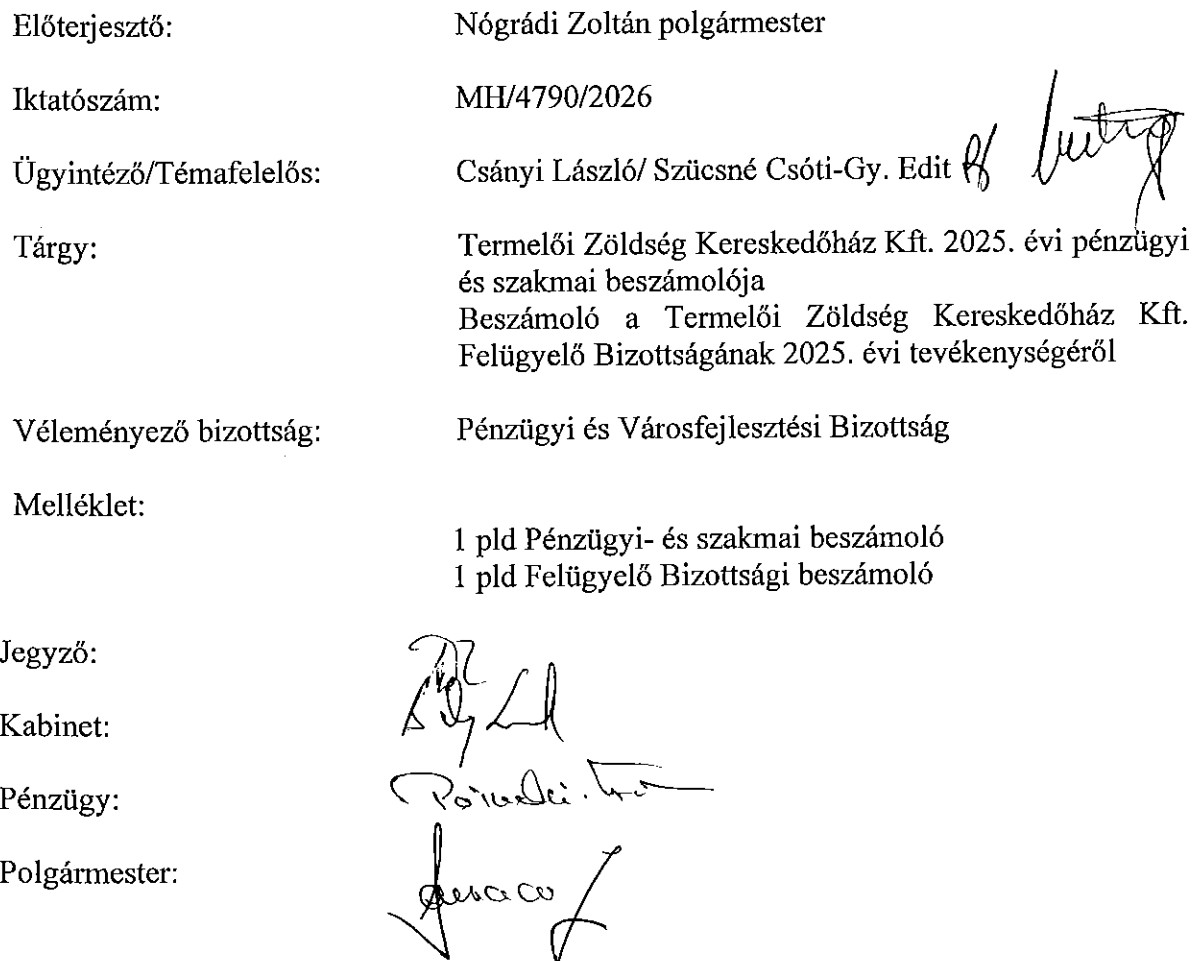 Előterjesztő: Nógrádi Zoltán polgármester
Iktatószám: MH/4790/2026
Ügyintéző/Témafelelős: Csányi László/ Szücsné Csóti-Gy. Edit
Tárgy: Termelői Zöldség Kereskedőház Kft. 2025. évi pénzügyi
és szakmai beszámolója
Beszámoló a Termelői Zöldség Kereskedőház Kft.
Felügyelő Bizottságának 2025. évi tevékenységéről
Véleményező bizottság: Pénzügyi és Városfejlesztési Bizottság
Melléklet:
1 pld Pénzügyi- és szakmai beszámoló
1 pld Felügyelő Bizottsági beszámoló
Jegyző:
Kabinet:
Pénzügy:
Polgármester: